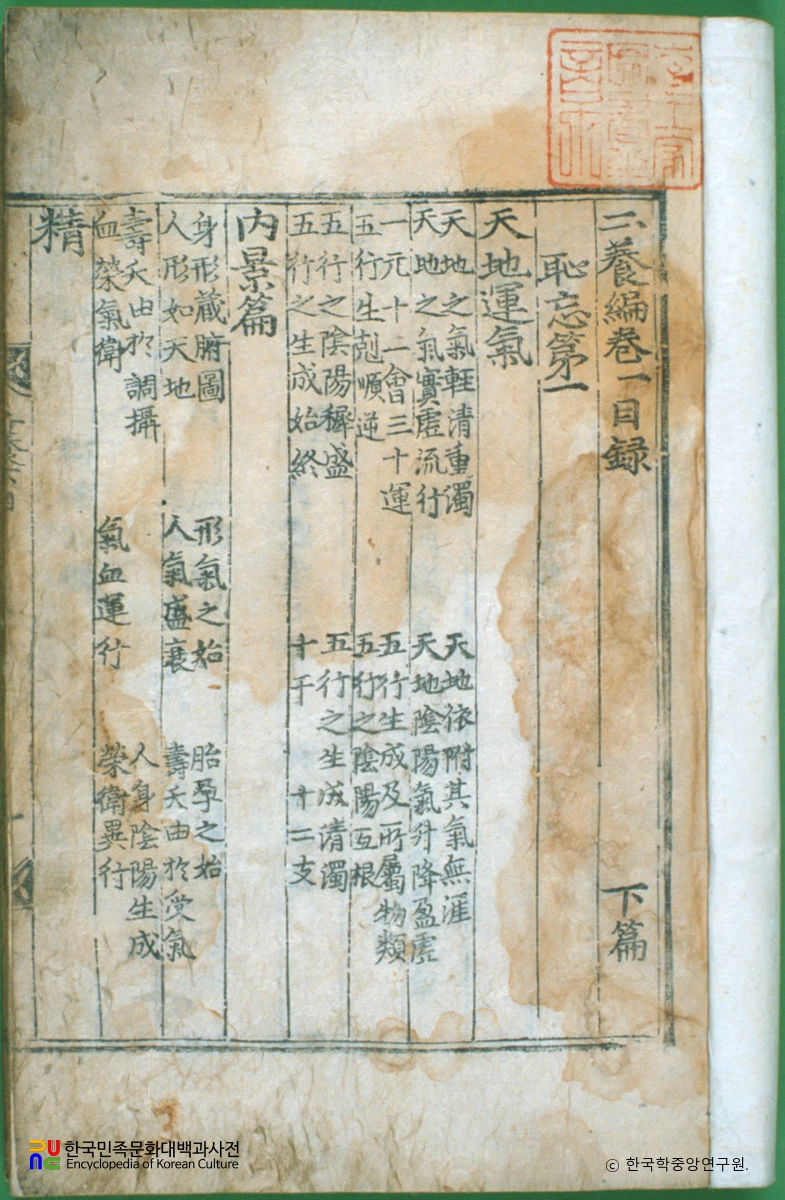 二養編卷一目録 下篇
恥忘第一
天地運氣
天地之氣輕清重濁 天地依附其氣無涯
天地之氣實虛流行 天地陰陽氣升降盈虛
一元十二會三十運 五行生成及所屬物類
五行生剋順逆 五行之陰陽互根
五行之陰陽穉盛 五行之生成清濁
五行之生成始終 十干 十二支
内景篇
身形蔵腑圖 形氣之始 胎孕之始
人形如天地 人氣盛衰 壽夭由於受氣
壽夭由於調攝 人身陰陽生成
血榮氣衛 氣血運行 榮衛異行
精
한국민족문화대백과사전
Encyclopedia of Korean Culture
© 한국학중앙연구원.